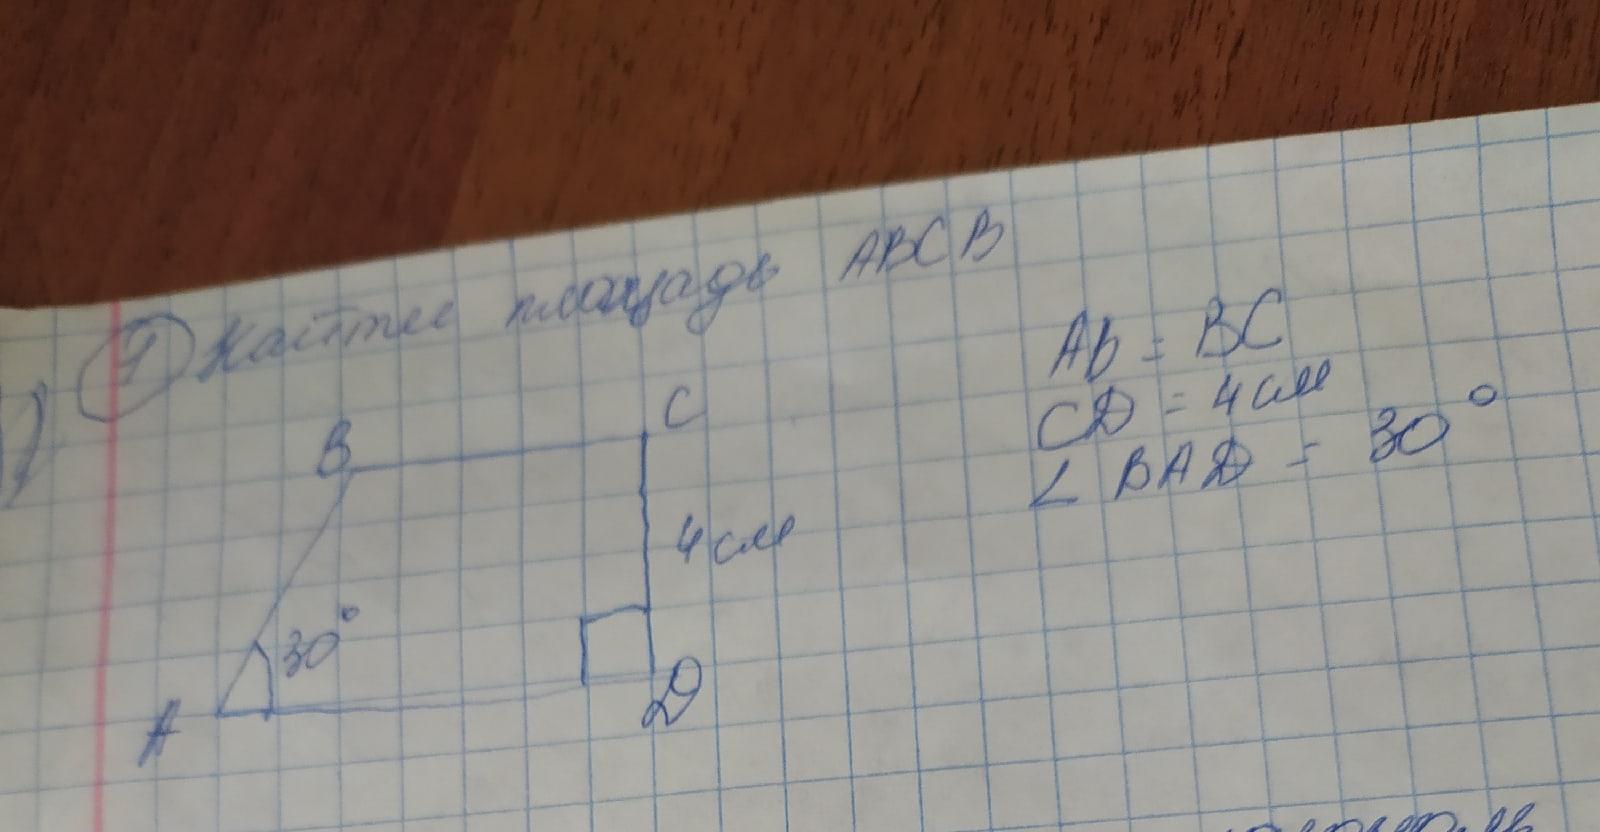 ① Найти площадь ABCB
AB = BC
CD = 4см
∠ BAD = 30°
B
C
4см
30°
A
D